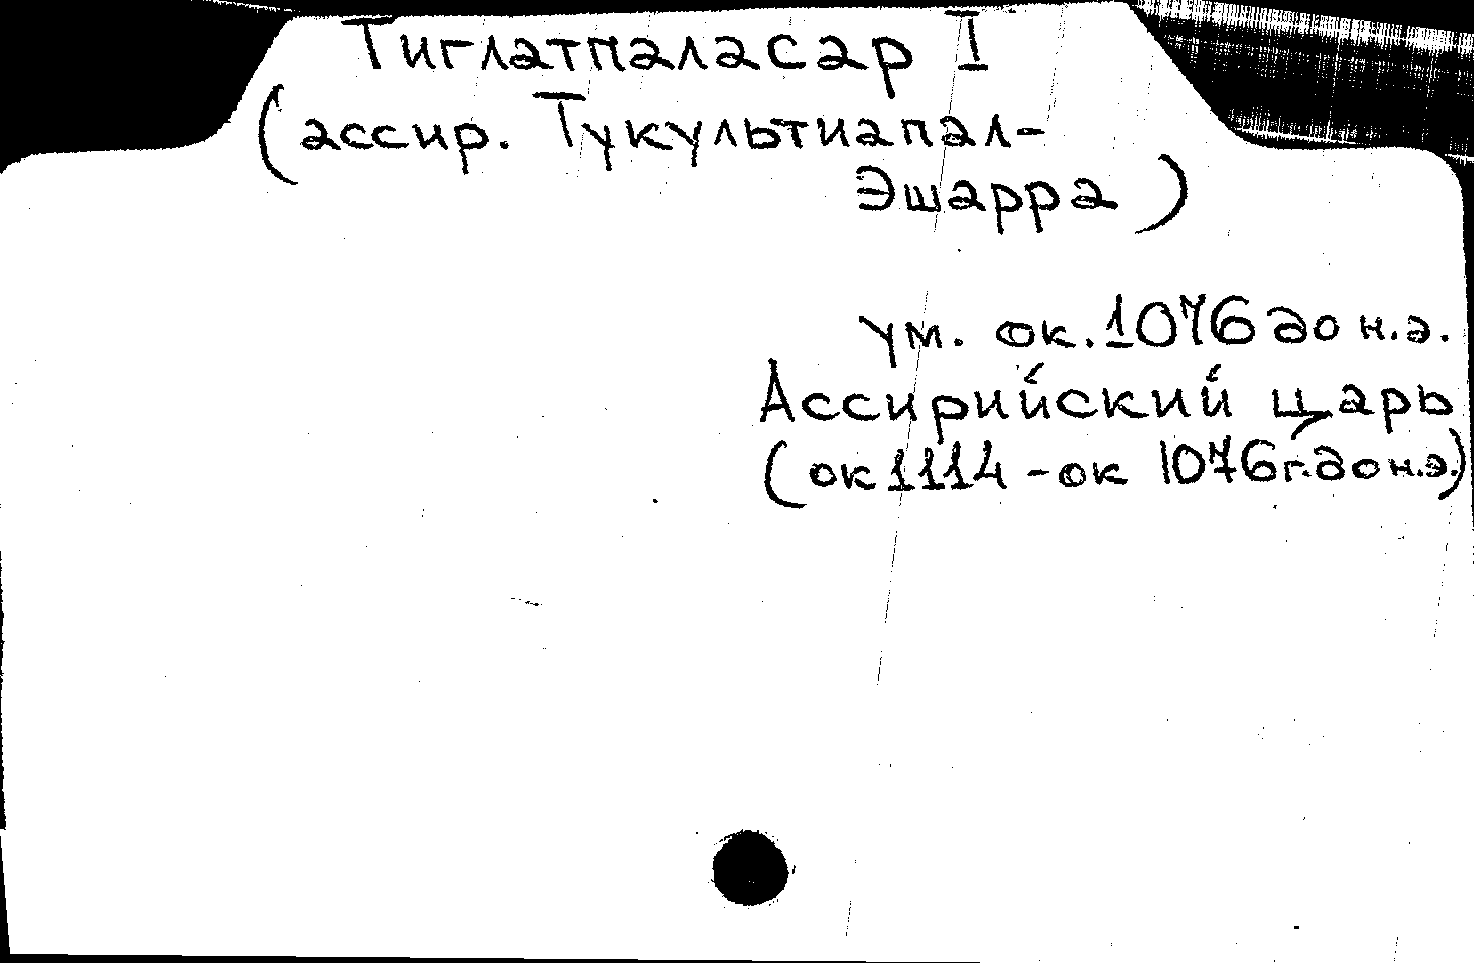 Тиглатпаласар I
(ассир. Тукультиапал-
Эшарра)
ум. ок. 1076 до н.э.
Ассирийский царь
(ок 1114 - ок 1076 г. до н.э.)